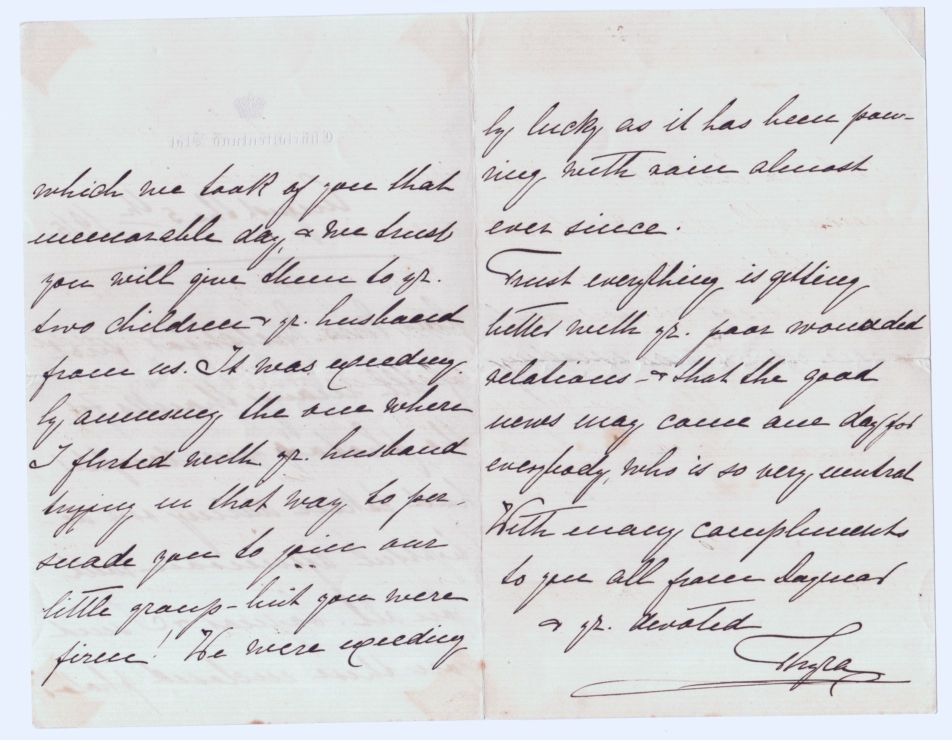 which we took of you that
memorable day, & we trust
you will give them to yr.
two children & yr. husband
from us. It was exceeding-
ly amusing the one where
I flirted with yr. husband
trying in that way to per-
suade you to join our
little group - but you were
firm! We were exceeding
ly lucky as it has been pow-
ring with rain almost
ever since.
Trust everything is getting
better with yr. poor wounded
relations - & that the good
news may come one day for
everybody, who is so very neutral
With many compliments
to you all from Dagmar
& yr. devoted
Thyra